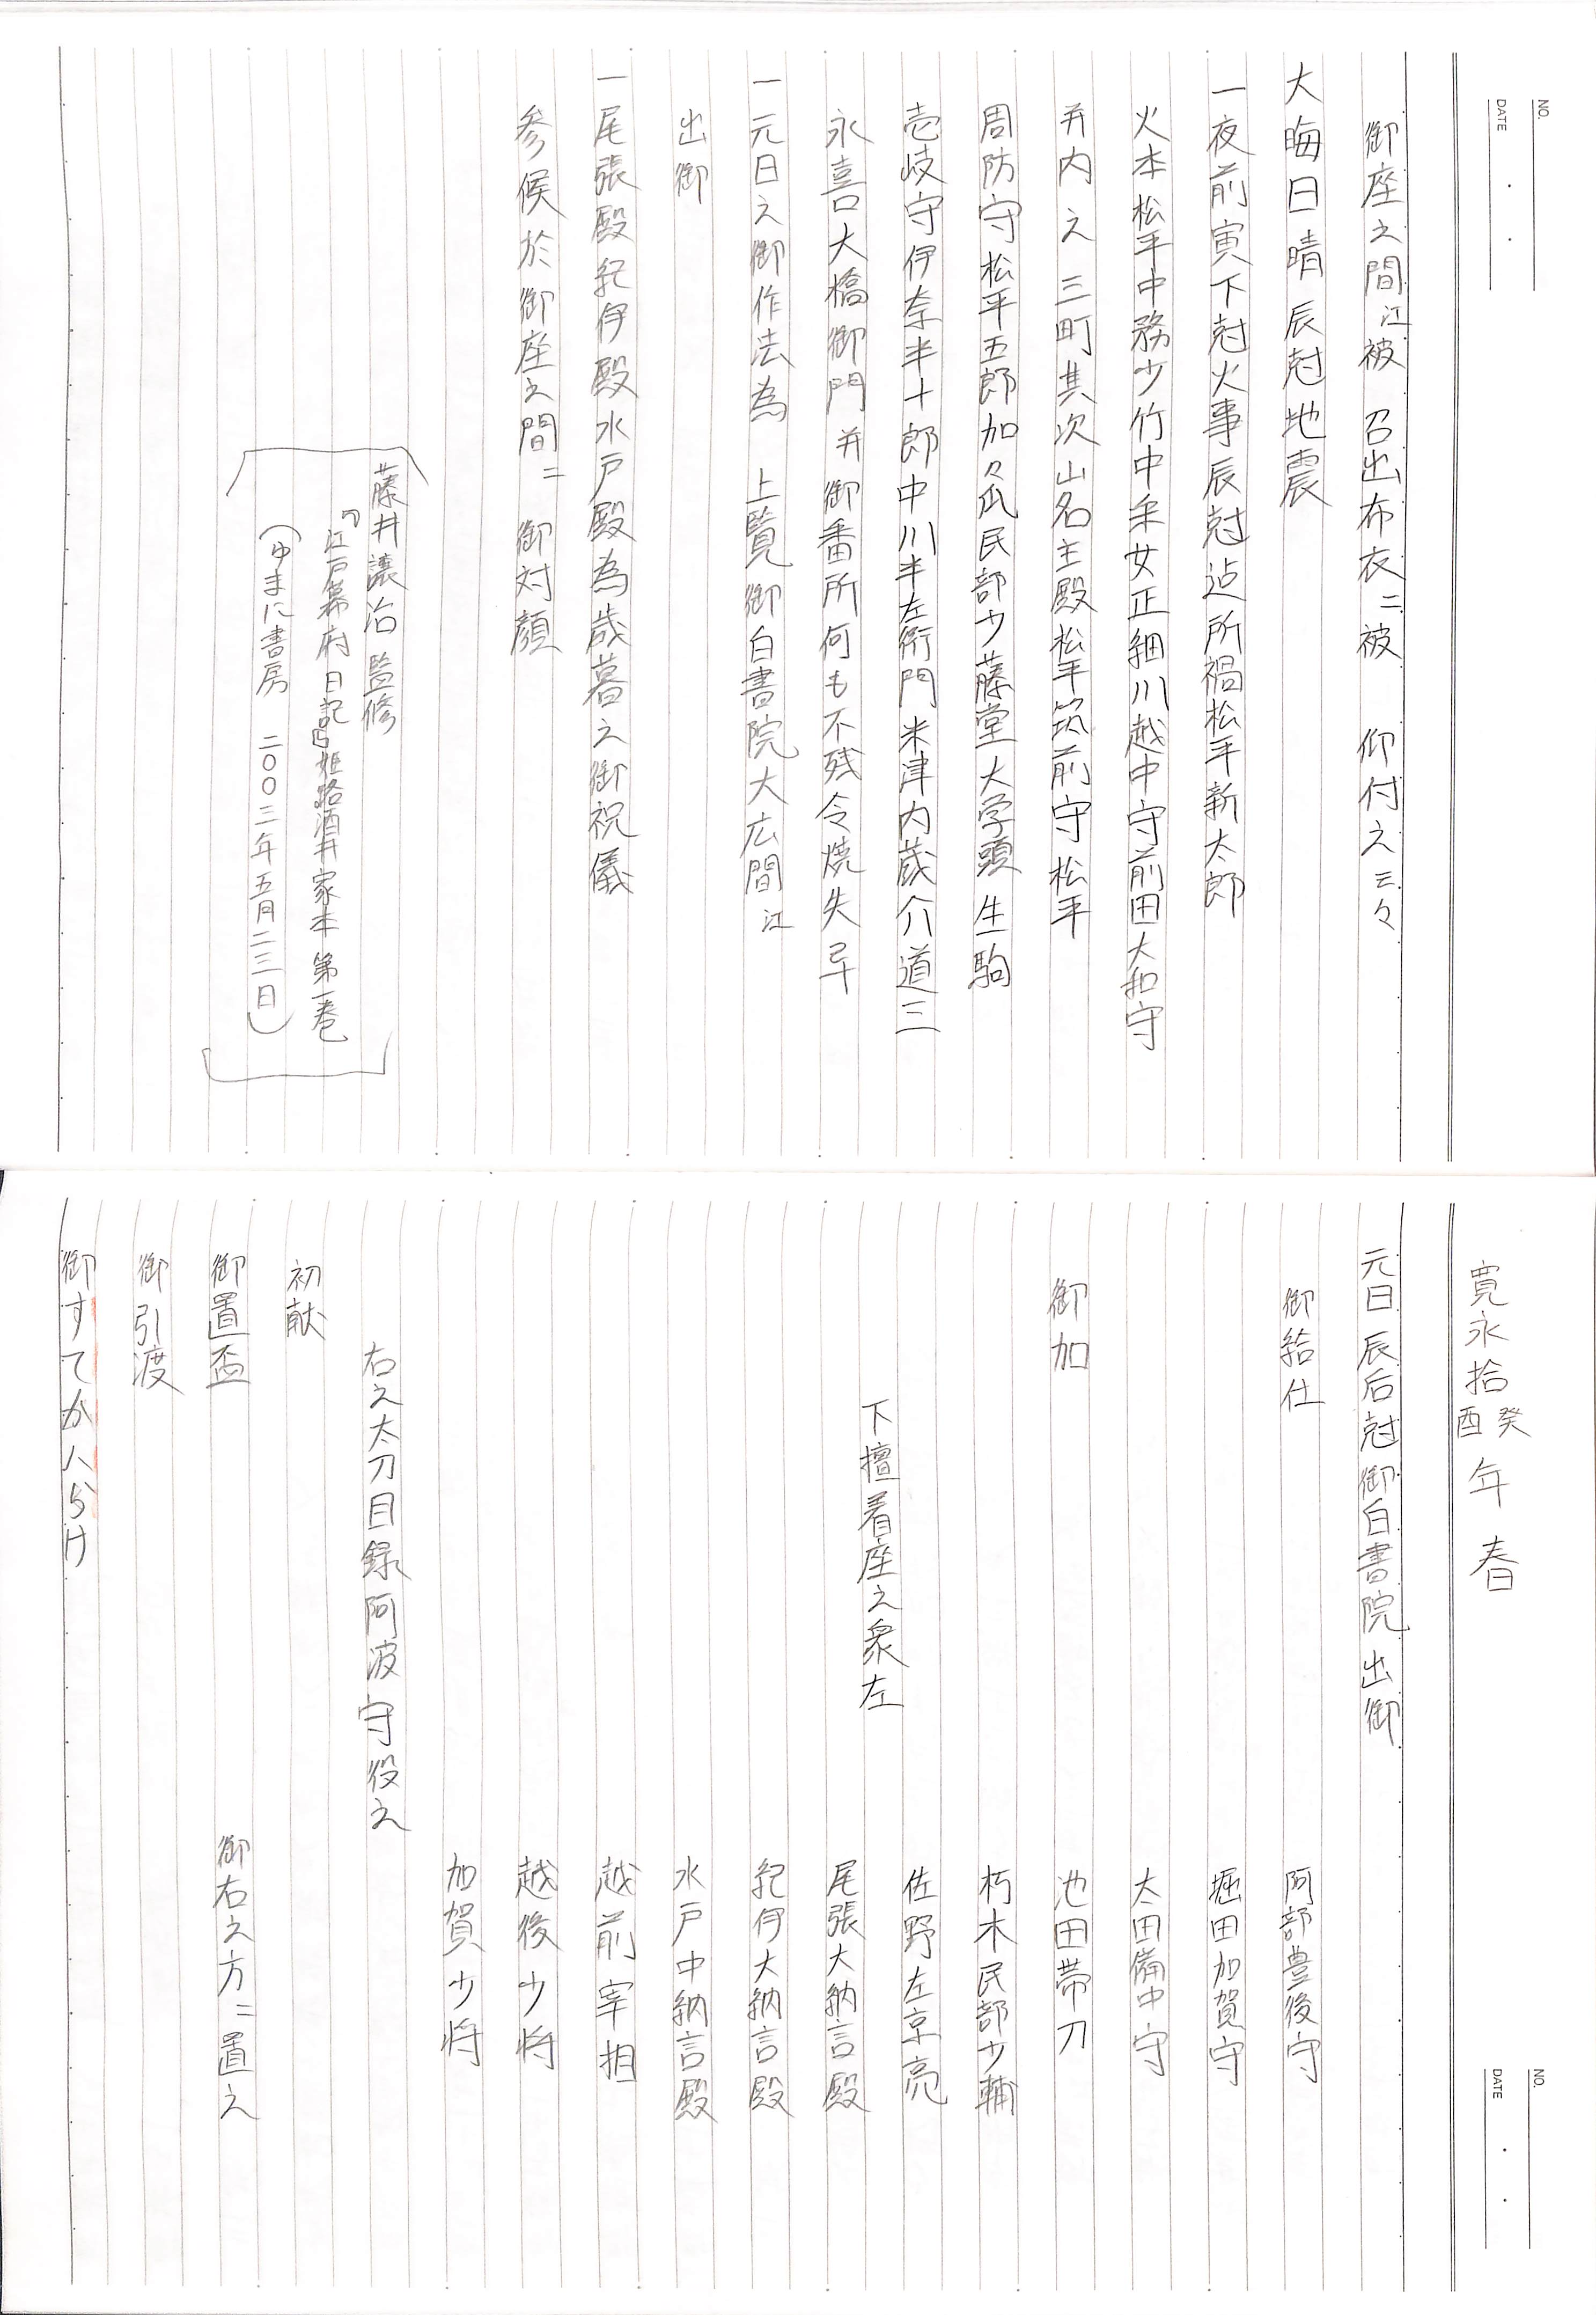 NO.
DATE
御座之間江被　召出布衣ニ被　仰付之云々
大晦日晴辰尅地震
一夜前寅下尅火事辰尅迠所禍松平新太郎
火本松平中務少竹中采女正細川越中守前田大和守
并内之三町其次山名主殿松平筑前守松平
周防守松平五郎加々爪民部少藤堂大学頭生駒
壱岐守伊奈半十郎中川半左衛門米津内蔵介道三
永喜大橋御門并御番所何も不残令焼失畢
一元日之御作法為　上覧御白書院大広間江
出御
一尾張殿紀伊殿水戸殿為歳暮之御祝儀
参候於御座之間ニ　御対顔
藤井讓治 監修
『江戸幕府日記』姫路酒井家本 第一巻
(ゆまに書房　二〇〇三年五月二三日)
NO.
DATE
寛永拾癸酉年春
元日辰后尅御白書院出御
御給仕　阿部豊後守
堀田加賀守
太田備中守
御加　池田帯刀
朽木民部少輔
佐野左京亮
下擅着座之衆左
尾張大納言殿
紀伊大納言殿
水戸中納言殿
越前宰相
越後少将
加賀少将
右之太刀目録阿波守役之
初献
御置盃　御右之方ニ置之
御引渡
御すてかハらけ